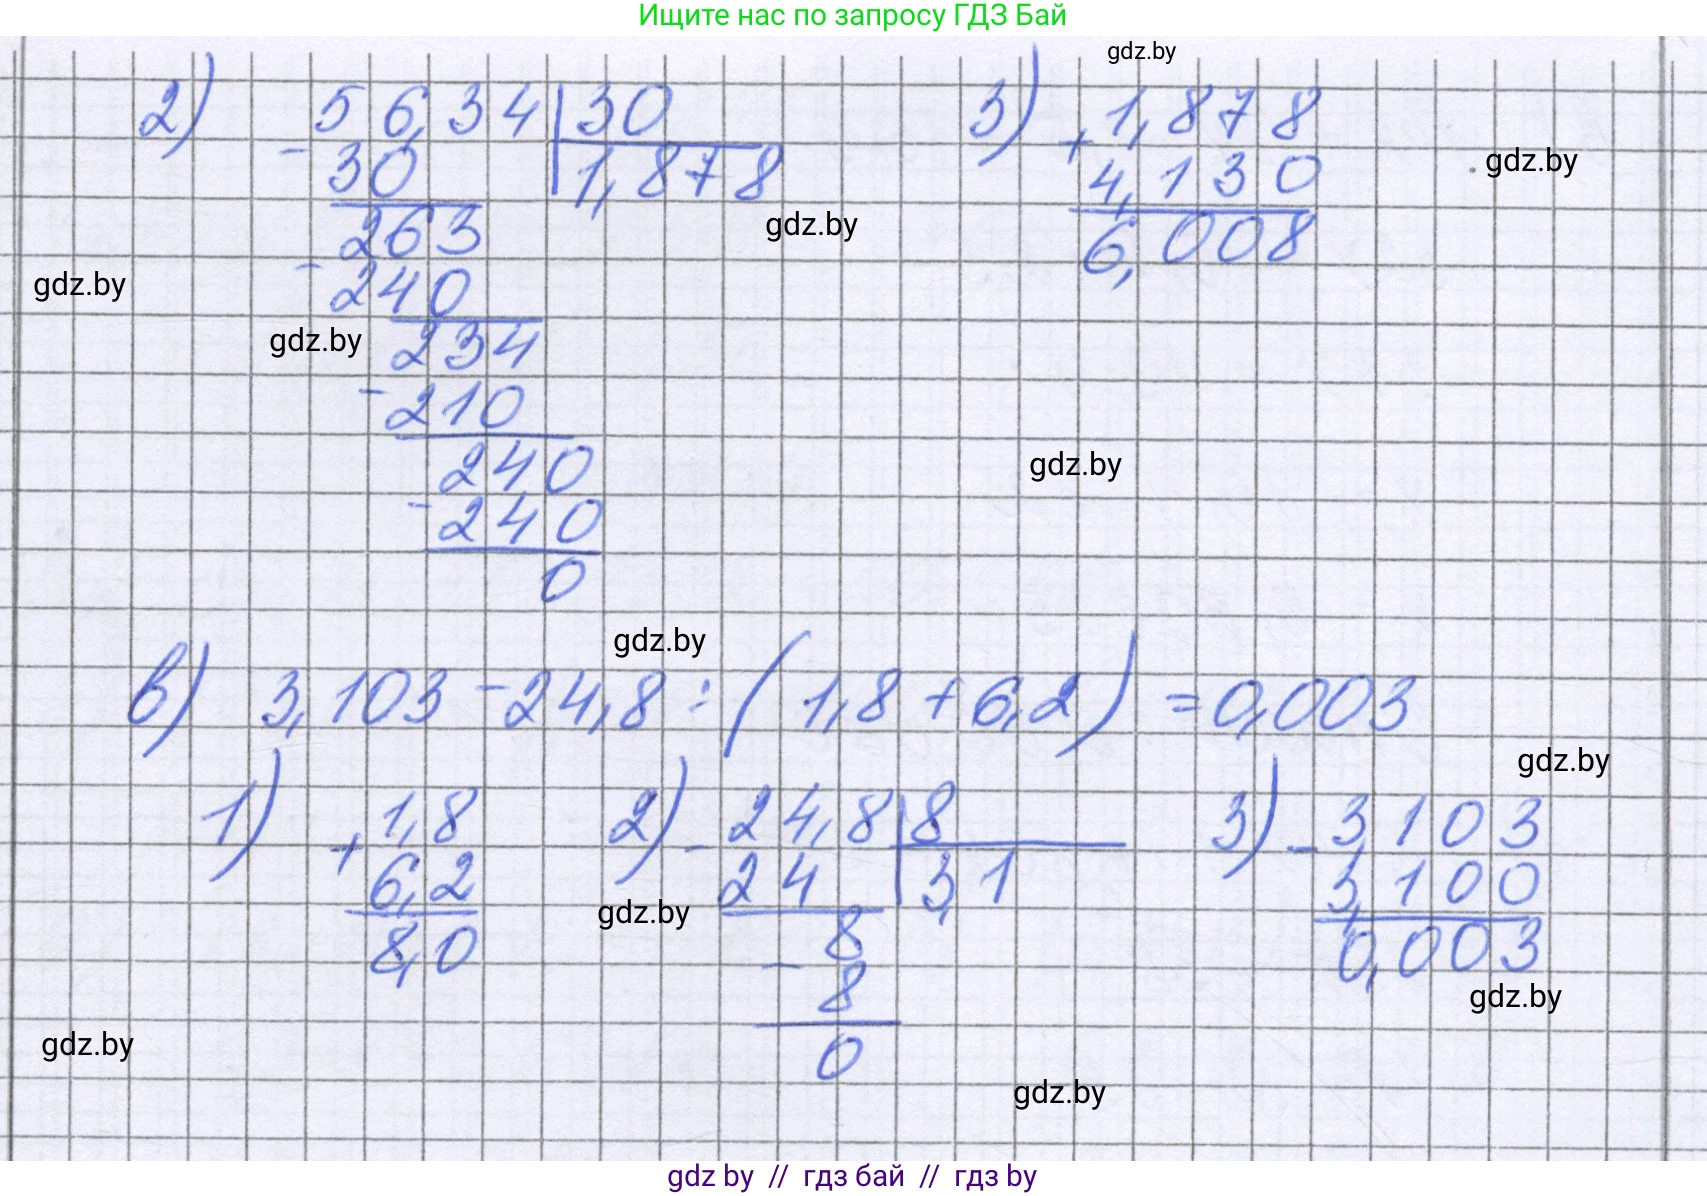 Ищите нас по запросу ГДЗ Бай
gdz.by
2) 56,34 | 30
- 30 | 1,878
263
- 240
234
- 210
240
- 240
0
3) + 1,878
4,130
6,008
gdz.by
gdz.by
gdz.by
gdz.by
gdz.by
gdz.by
в) 3,103 - 24,8 : (1,8 + 6,2) = 0,003
gdz.by
1) + 1,8
6,2
8,0
2) - 24,8 | 8
24 | 3,1
8
- 8
0
3) - 3,103
3,100
0,003
gdz.by
gdz.by
gdz.by
gdz.by
gdz by // гдз бай // гдз by